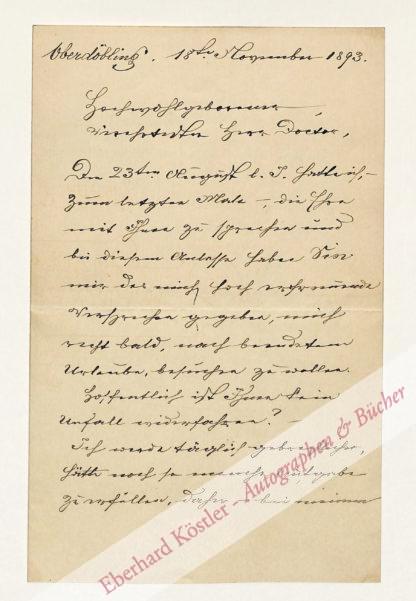 Oberdöbling. 18ten November 1893.
Hochwohlgeborener,
Verehrtester Herr Doctor,
Den 23ten August l. J. hatte ich,-
zum letzten Male -, die Ehre
mit Ihnen zu sprechen und
bei diesem Anlasse haben Sie
mir das mich hoch erfreuende
Versprechen gegeben, mich
recht bald, nach beendetem
Urlaube, besuchen zu wollen.
Hoffentlich ist Ihnen kein
Unfall widerfahren? -
Ich werde täglich gebrechlicher,
hätte noch so manche Aufgabe
zu erfüllen, daher bei meinem
Eberhard Köstler - Autographen & Bücher